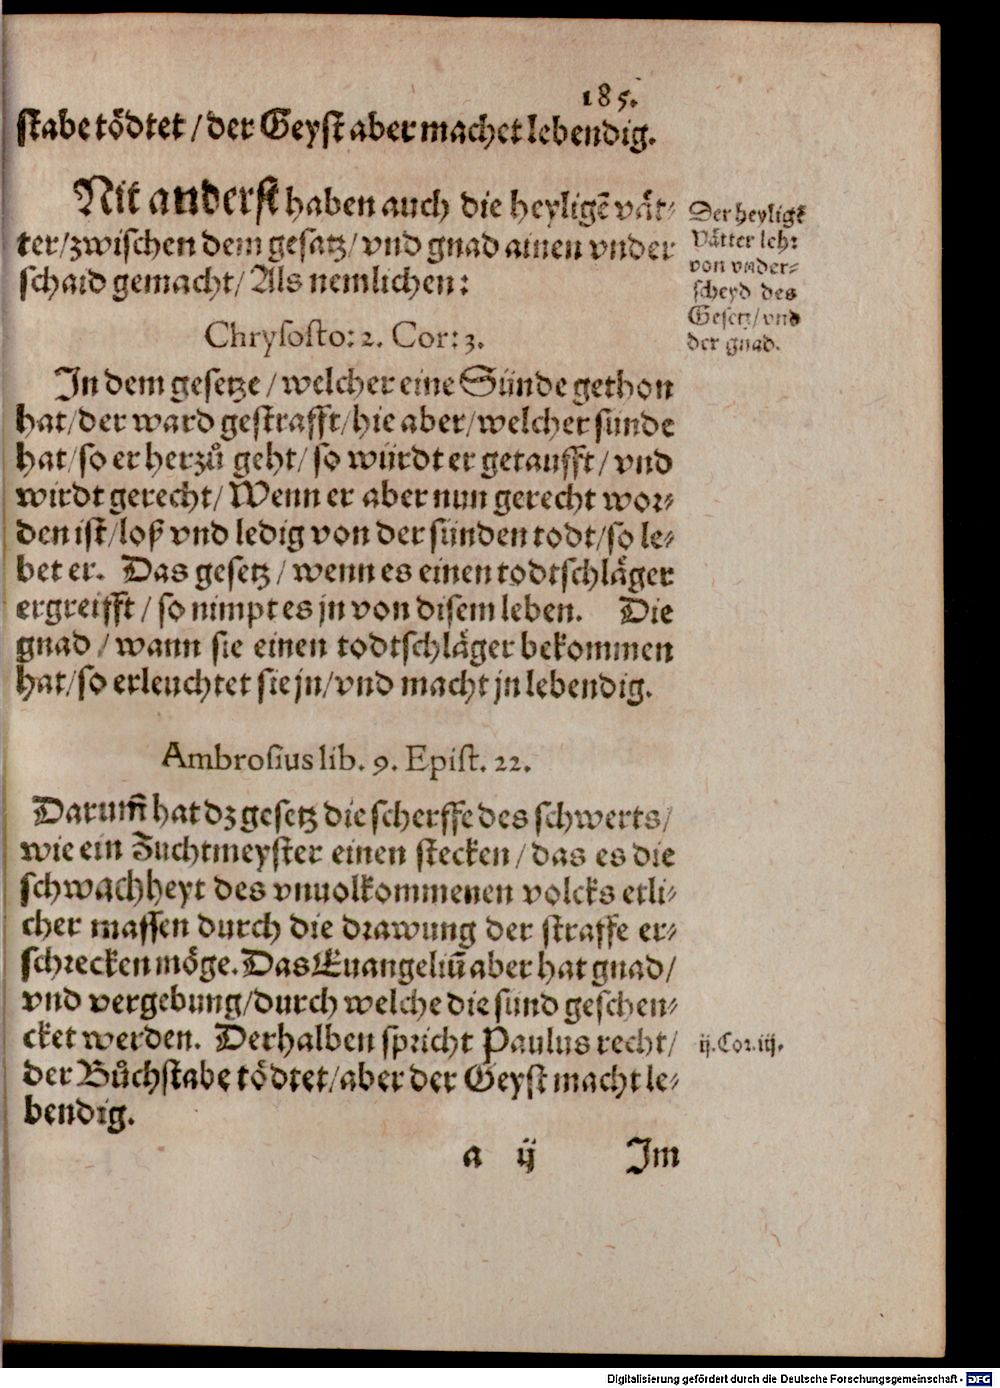 185.
stabe tödtet / der Geyst aber machet lebendig.
Nit anderst haben auch die heyligē vät⸗
ter/zwischen dem gesatz/ vnd gnad ainen vnder
schaid gemacht/ Als nemlichen:
Der heyligē
Vätter lehr
von vnder⸗
scheyd des
Gesetz/ vnd
der gnad.
Chrysosto: 2. Cor: 3.
In dem gesetze / welcher eine Sünde gethon
hat/der ward gestrafft/hie aber/welcher sünde
hat/so er herzů geht/ so würdt er getaufft/ vnd
wirdt gerecht/ Wenn er aber nun gerecht wor⸗
den ist/loß vnd ledig von der sünden todt/so le⸗
bet er. Das gesetz / wenn es einen todtschläger
ergreifft / so nimpt es jn von disem leben. Die
gnad / wann sie einen todtschläger bekommen
hat/so erleuchtet sie jn/vnd macht jn lebendig.
Ambrosius lib. 9. Epist. 22.
Darum̃ hat dz gesetz die scherffe des schwerts/
wie ein Zuchtmeyster einen stecken / das es die
schwachheyt des vnuolkommenen volcks etli⸗
cher massen durch die drawung der straffe er⸗
schrecken möge. Das Euangeliū aber hat gnad/
vnd vergebung/durch welche die sünd geschen⸗
cket werden. Derhalben spricht Paulus recht/
der Bůchstabe tödtet/aber der Geyst macht le⸗
bendig.
ij. Cor. iij.
a ij Im
Digitalisierung gefördert durch die Deutsche Forschungsgemeinschaft - DFG